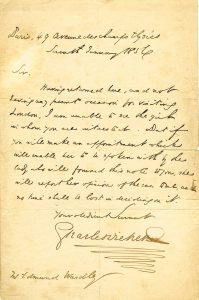 Paris, 49 Avenue des Champs Elysées
January 1856
Sir.
Having returned here, and not
having any present occasion for visiting
London, I am unable to see the girl
in whom you are interested. But if
you will make an appointment which
will enable her to be spoken with by the
lady who will forward this note to you, she
will report her opinion of the case to me, and
no time shall be lost in deciding on it.
Your obedient Servant
Charles Dickens
Mr. Edmund Wardley